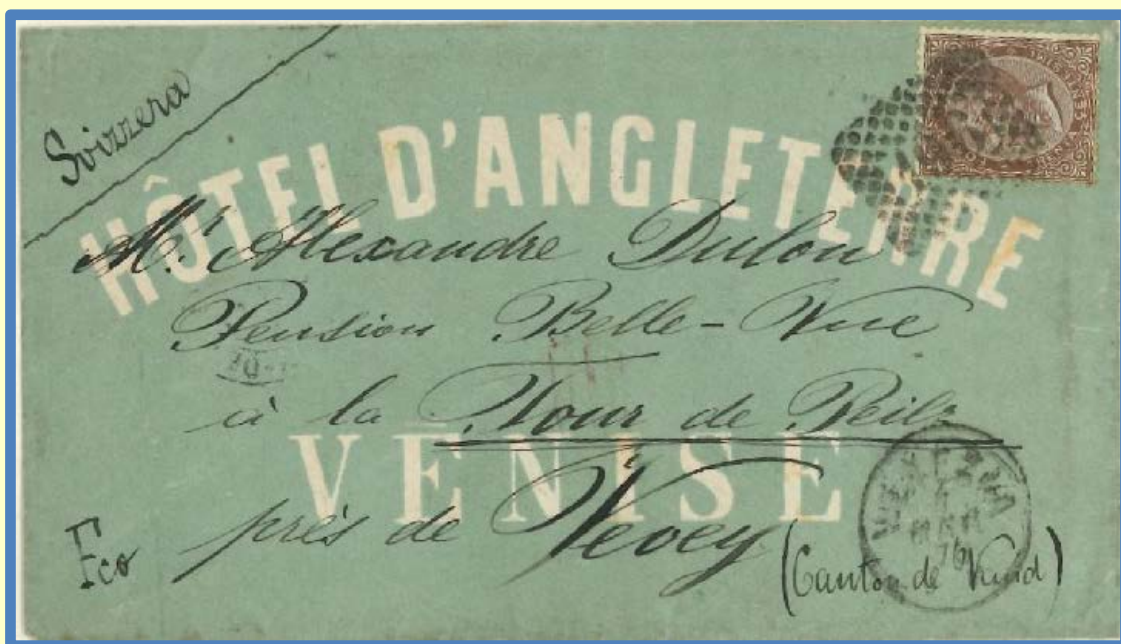 Svizzera
HÔTEL D'ANGLETERRE
Mr. Alexandre Dulon
Pension Belle-Vue
à la Tour de Peilz
VENISE
près de Vevey
(Canton de Vaud)
Fco
VENEZIA
76